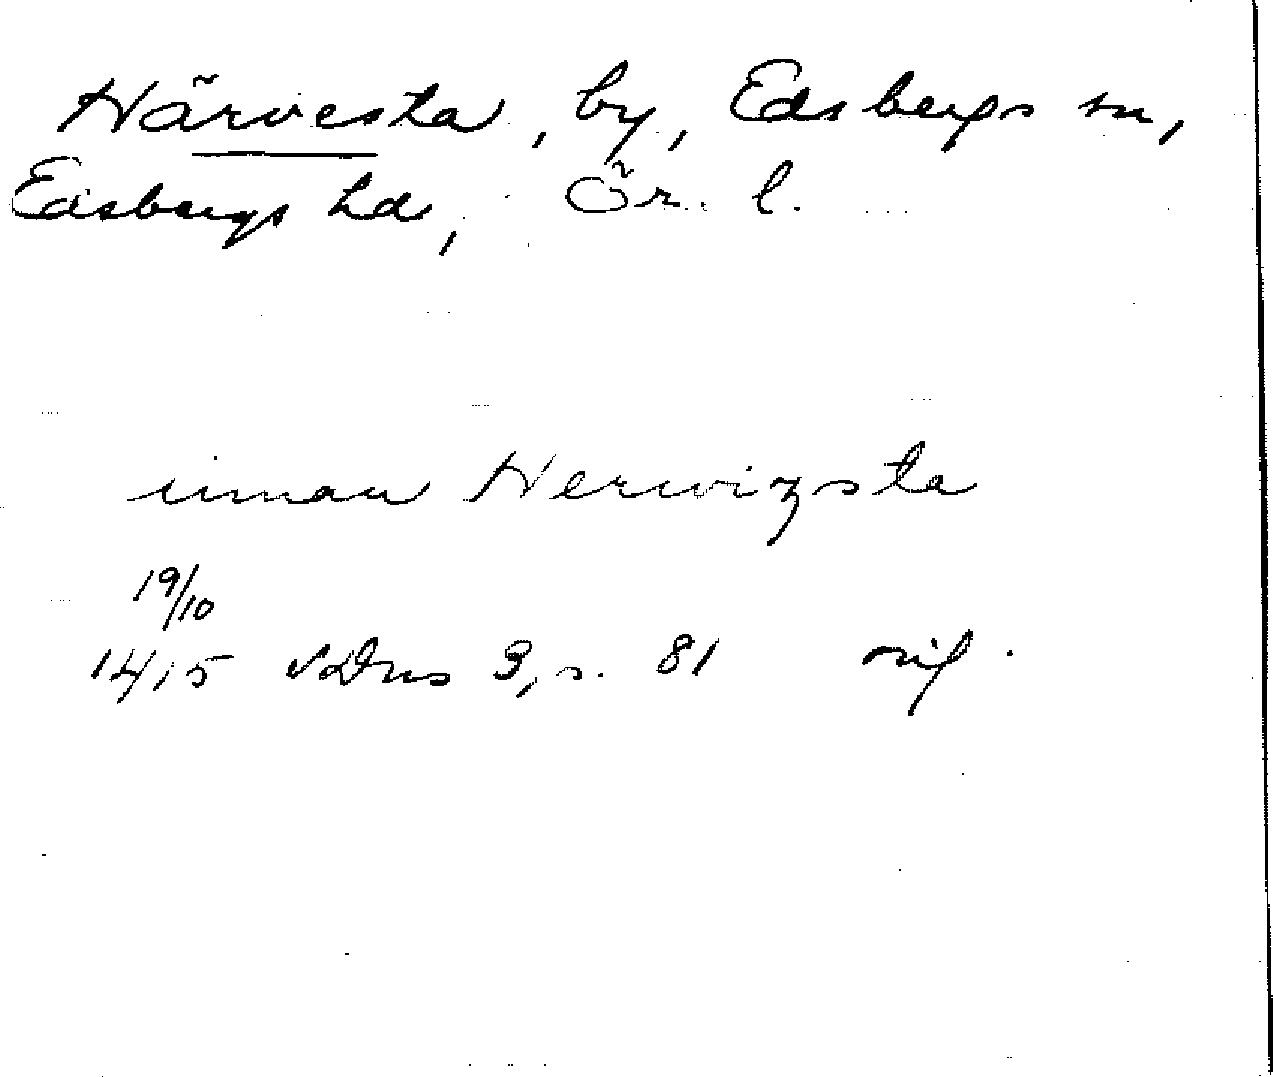 Härvesta, by, Edsbergs sn,
Edsbergs hd, Ör. l.
innan Herwizsta
19/10
1415 SDns 3, s. 81 orig.